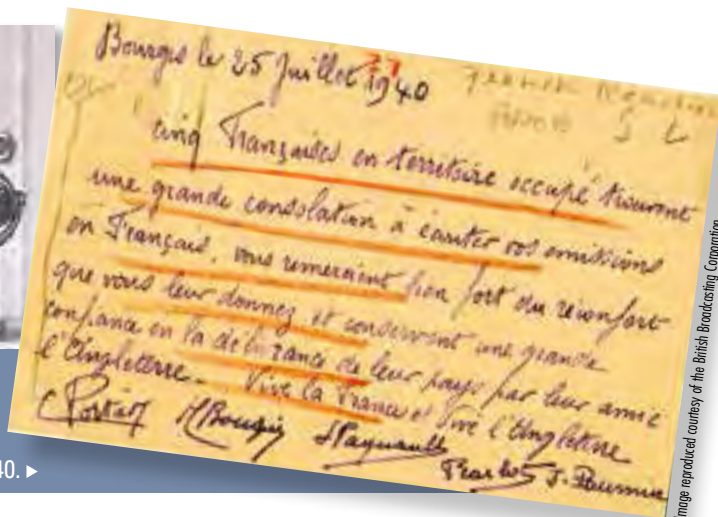 Bourges le 25 Juillet 1940
Cinq Françaises en territoire occupé trouvent
une grande consolation à écouter vos émissions
en Français, vous remercient bien fort du réconfort
que vous leur donnez et conservent une grande
confiance en la délivrance de leur pays par leur amie
l'Angleterre. Vive la France et Vive l'Angleterre
40. ►
Image reproduced courtesy of the British Broadcasting Corporation